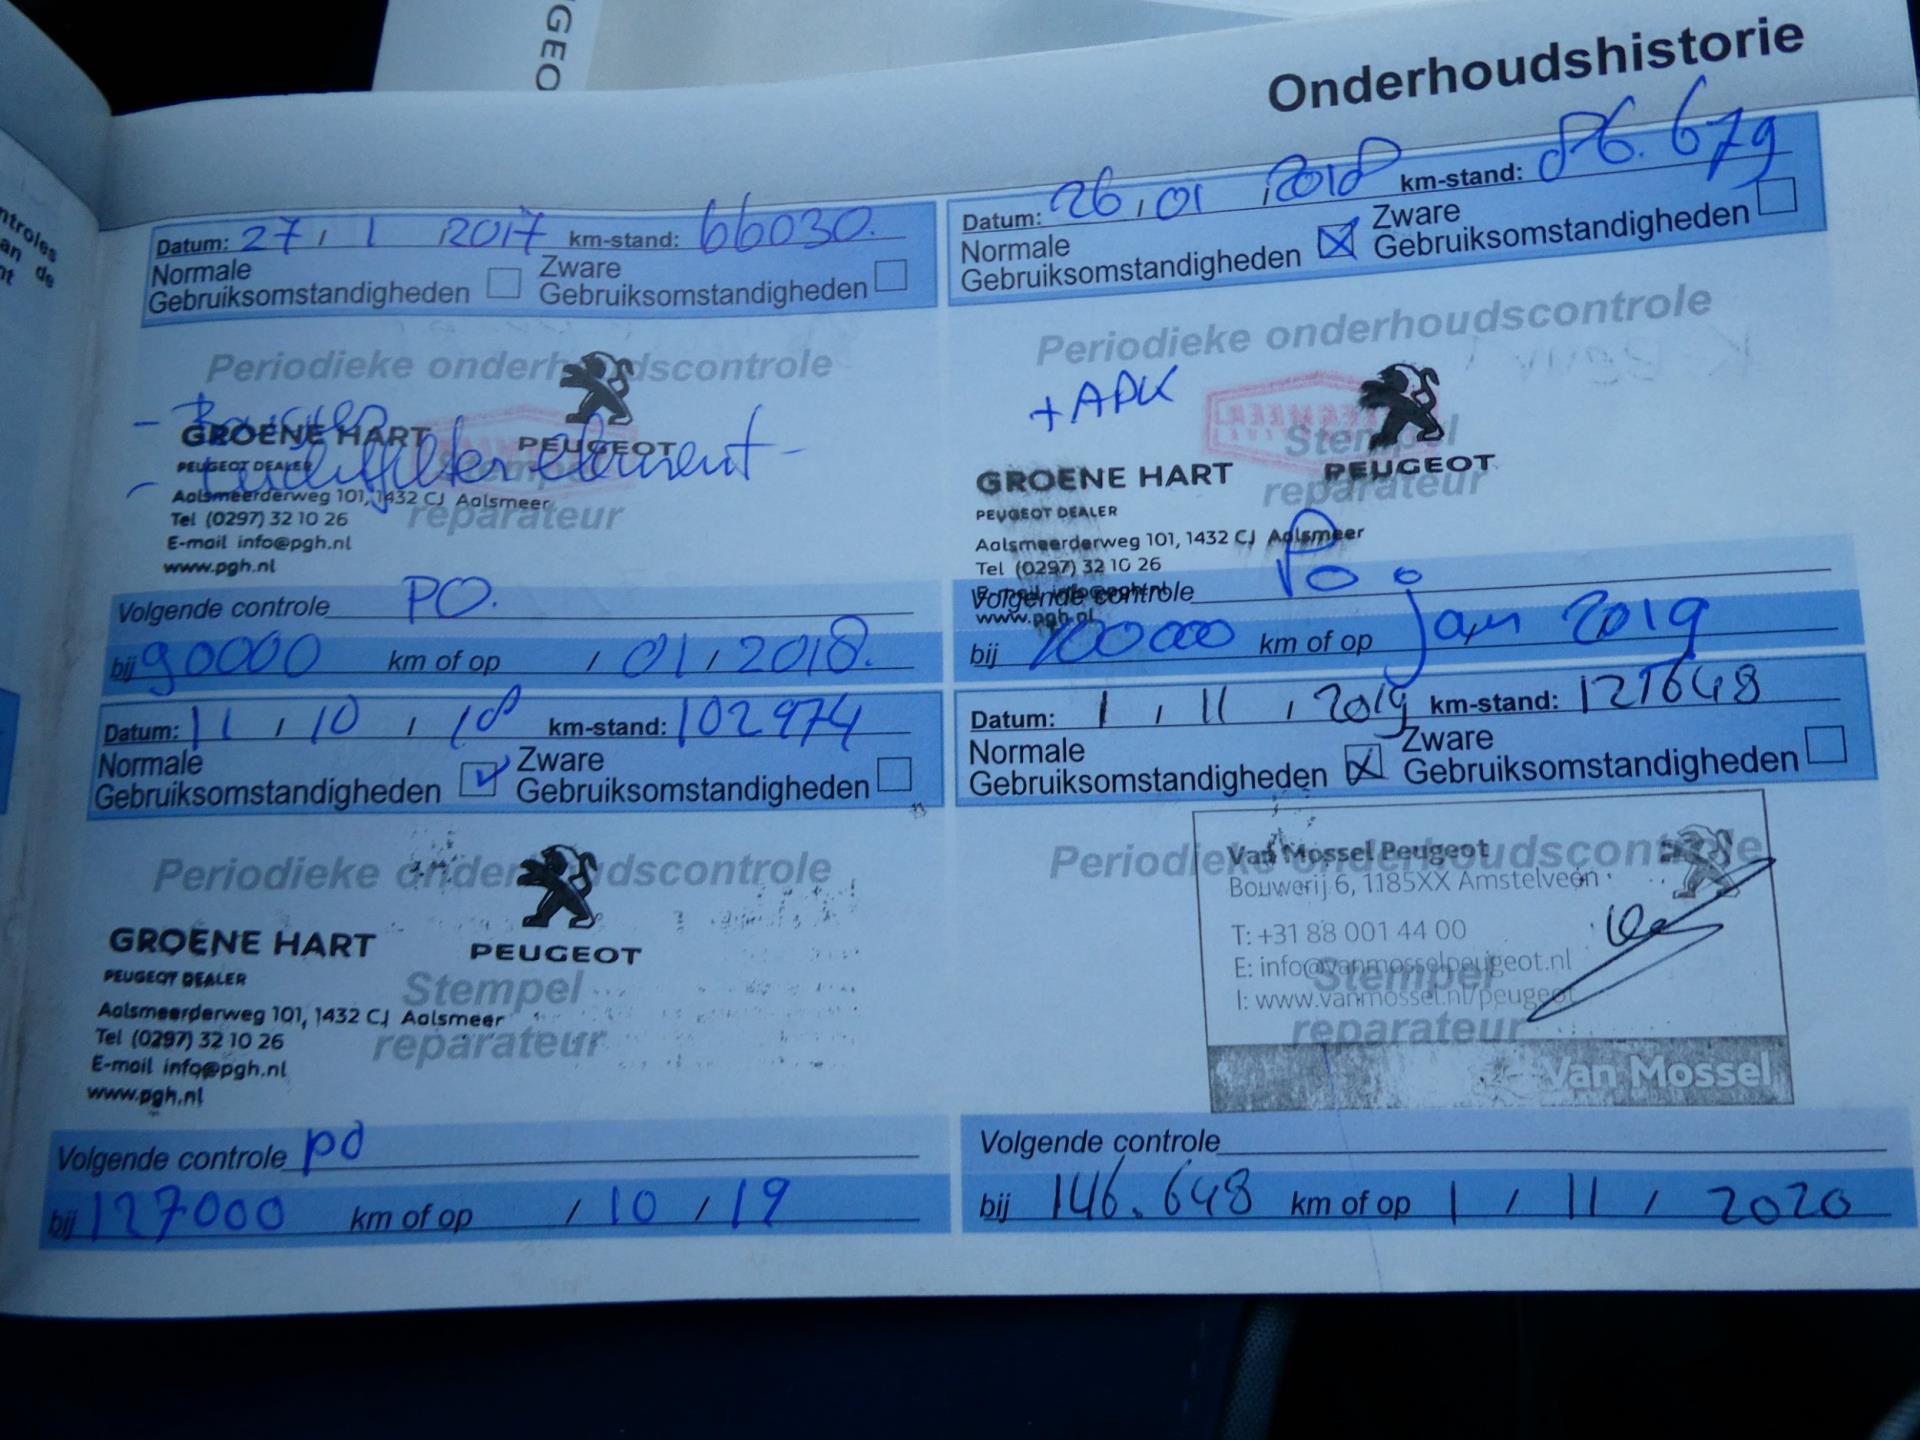 GEO
Onderhoudshistorie
ntroles
an de
nt
Datum: 27 / 1 / 2017 km-stand: 66030.
Normale
Gebruiksomstandigheden
Zware
Gebruiksomstandigheden
Periodieke onderhoudscontrole
- Bougies
GROENE HART
PEUGEOT
- Luchtfilter element -
PEUGEOT DEALER
Stempel
Aalsmeerderweg 101, 1432 CJ Aalsmeer
reparateur
Tel (0297) 32 10 26
E-mail info@pgh.nl
www.pgh.nl
Volgende controle PO.
bij 90000 km of op / 01 / 2018.
Datum: 26 / 01 / 2018 km-stand: 86.679
Normale
Gebruiksomstandigheden
Zware
Gebruiksomstandigheden
Periodieke onderhoudscontrole
+ APK
Stempel
PEUGEOT
GROENE HART
reparateur
PEUGEOT DEALER
Aalsmeerderweg 101, 1432 CJ Aalsmeer
Tel (0297) 32 10 26
E-mail info@pgh.nl
www.pgh.nl
Volgende controle Po.
bij 100000 km of op jan 2019
Datum: 11 / 10 / 18 km-stand: 102974
Normale
Gebruiksomstandigheden
Zware
Gebruiksomstandigheden
Periodieke onderhoudscontrole
GROENE HART
PEUGEOT
PEUGEOT DEALER
Stempel
Aalsmeerderweg 101, 1432 CJ Aalsmeer
reparateur
Tel (0297) 32 10 26
E-mail info@pgh.nl
www.pgh.nl
Volgende controle po
bij 127000 km of op / 10 / 19
Datum: 1 / 11 / 2019 km-stand: 121648
Normale
Gebruiksomstandigheden
Zware
Gebruiksomstandigheden
Periodieke onderhoudscontrole
Van Mossel Peugeot
Bouwerij 6, 1185XX Amstelveen
T: +31 88 001 44 00
E: info@vanmosselpeugeot.nl
Stempel
I: www.vanmossel.nl/peugeot
reparateur
Van Mossel
Volgende controle
bij 146.648 km of op 1 / 11 / 2020